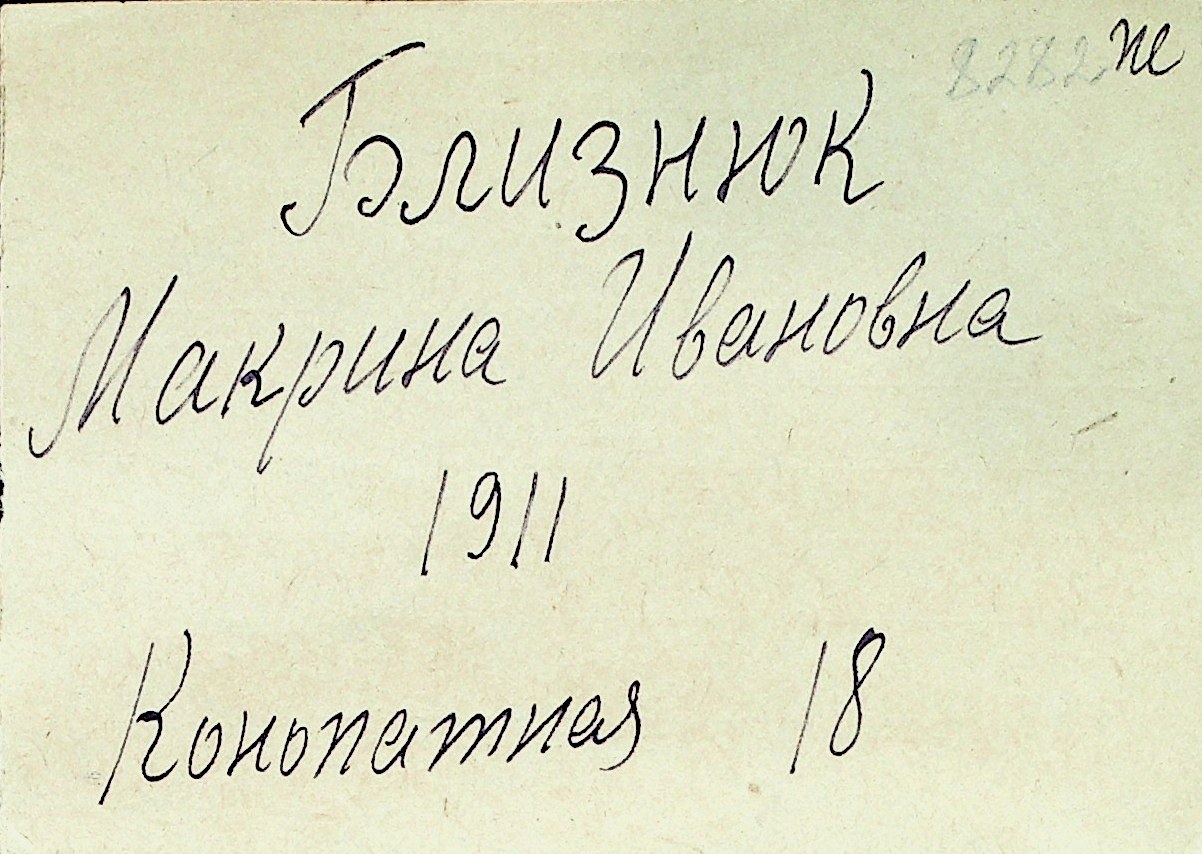 8282 пе
Близнюк
Макрина Ивановна
1911
Конопатная 18